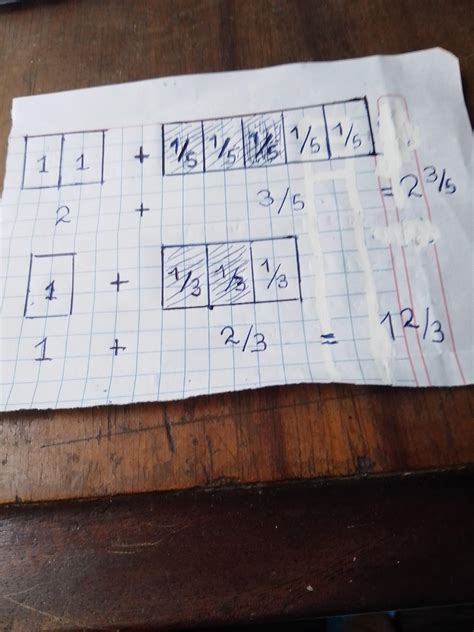 1 1 + 1/5 1/5 1/5 1/5 1/5
2 + 3/5 = 2 3/5
1 + 1/3 1/3 1/3
1 + 2/3 = 1 2/3